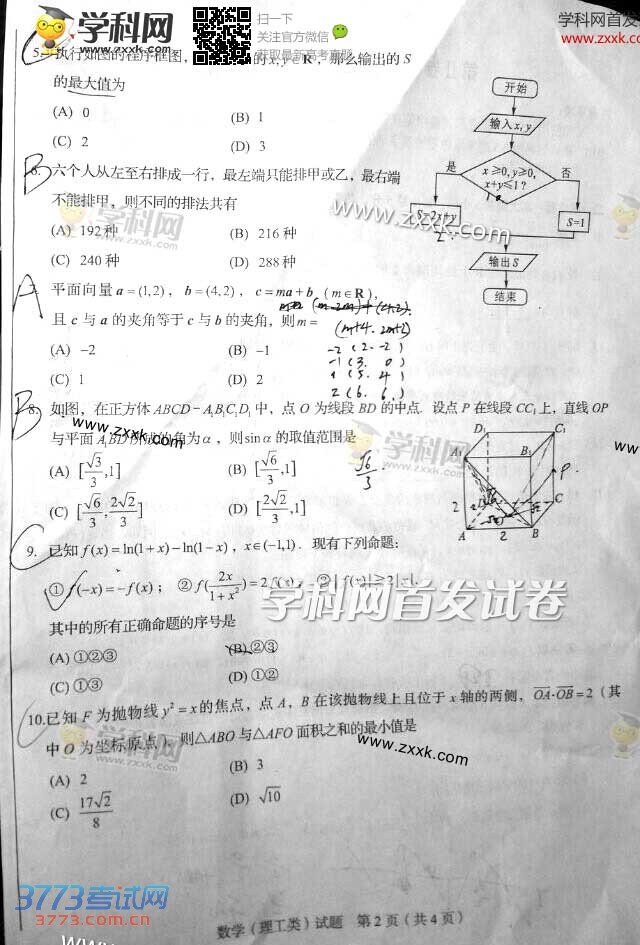 学科网
www.zxxk.com
扫一下
关注官方微信
获取最新高考真题
学科网首发试
www.zxxk.com
C
5. 执行如图的程序框图, 的x,y∈R,那么输出的 S
的最大值为
(A) 0 (B) 1
(C) 2 (D) 3
开始
输入x,y
是 x≥0,y≥0,
x+y≤1? 否
S=2x+y S=1
输出S
结束
B
6. 六个人从左至右排成一行,最左端只能排甲或乙,最右端
不能排甲,则不同的排法共有
(A) 192种 (B) 216种
(C) 240种 (D) 288种
学科网
www.zxxk.com
www.zxxk.com
A
7. 平面向量 a=(1,2), b=(4,2), c=ma+b (m∈R),
且 c 与 a 的夹角等于 c 与 b 的夹角,则m=
(m+4. 2m+2)
(A) -2 (B) -1
(C) 1 (D) 2
-2 (2. -2)
-1 (3. 0)
1 (5. 4)
2 (6. 6)
B
8. 如图,在正方体 ABCD-A₁B₁C₁D₁ 中,点 O 为线段 BD 的中点. 设点 P 在线段 CC₁ 上,直线 OP
与平面 A₁BD 所成的角为α,则sinα的取值范围是
(A) [√3/3,1] (B) [√6/3,1] √6/3
(C) [√6/3,2√2/3] (D) [2√2/3,1]
www.zxxk.com
学科网
D₁ C₁
A₁ B₁
P
2 C
A 2 B
C
9. 已知 f(x)=ln(1+x)-ln(1-x),x∈(-1,1). 现有下列命题:
① f(-x)=-f(x); ② f(2x/(1+x²))=2f(x) ③ |f(x)|≥2|x|.
其中的所有正确命题的序号是
(A) ①②③ (B) ②③
(C) ①③ (D) ①②
学科网首发试卷
C
10. 已知 F 为抛物线 y²=x 的焦点,点 A,B 在该抛物线上且位于 x 轴的两侧,OA·OB=2(其
中 O 为坐标原点),则△ABO 与△AFO 面积之和的最小值是
(A) 2 (B) 3
(C) 17√2/8 (D) √10
学科网
www.zxxk.com
www.zxxk.com
3773考试网
3773.com.cn
数学(理工类)试题 第2页(共4页)